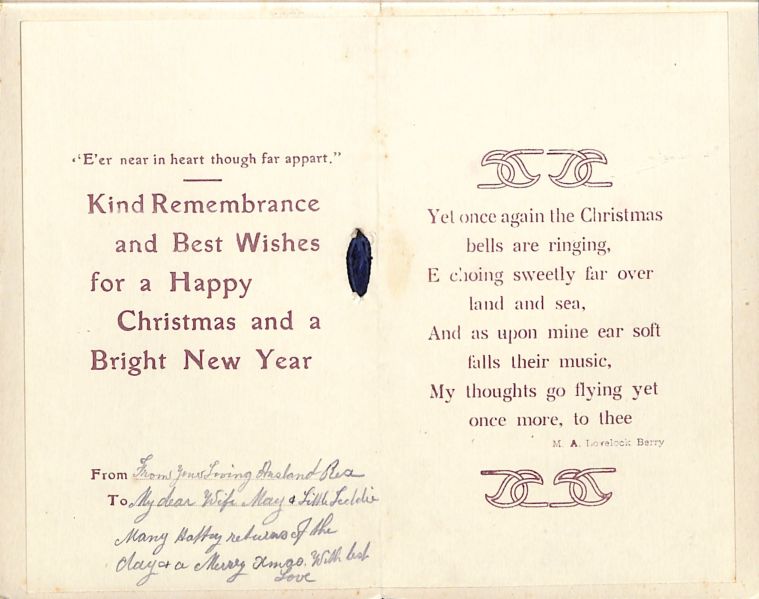 "E'er near in heart though far appart."
Kind Remembrance
and Best Wishes
for a Happy
Christmas and a
Bright New Year
From From Your Loving Husband Rex
To My dear Wife May & Little
Many Happy returns of the
day & a Merry Xmas. With best
Love
Yet once again the Christmas
bells are ringing,
Echoing sweetly far over
land and sea,
And as upon mine ear soft
falls their music,
My thoughts go flying yet
once more, to thee
M. A. Lovelock Berry